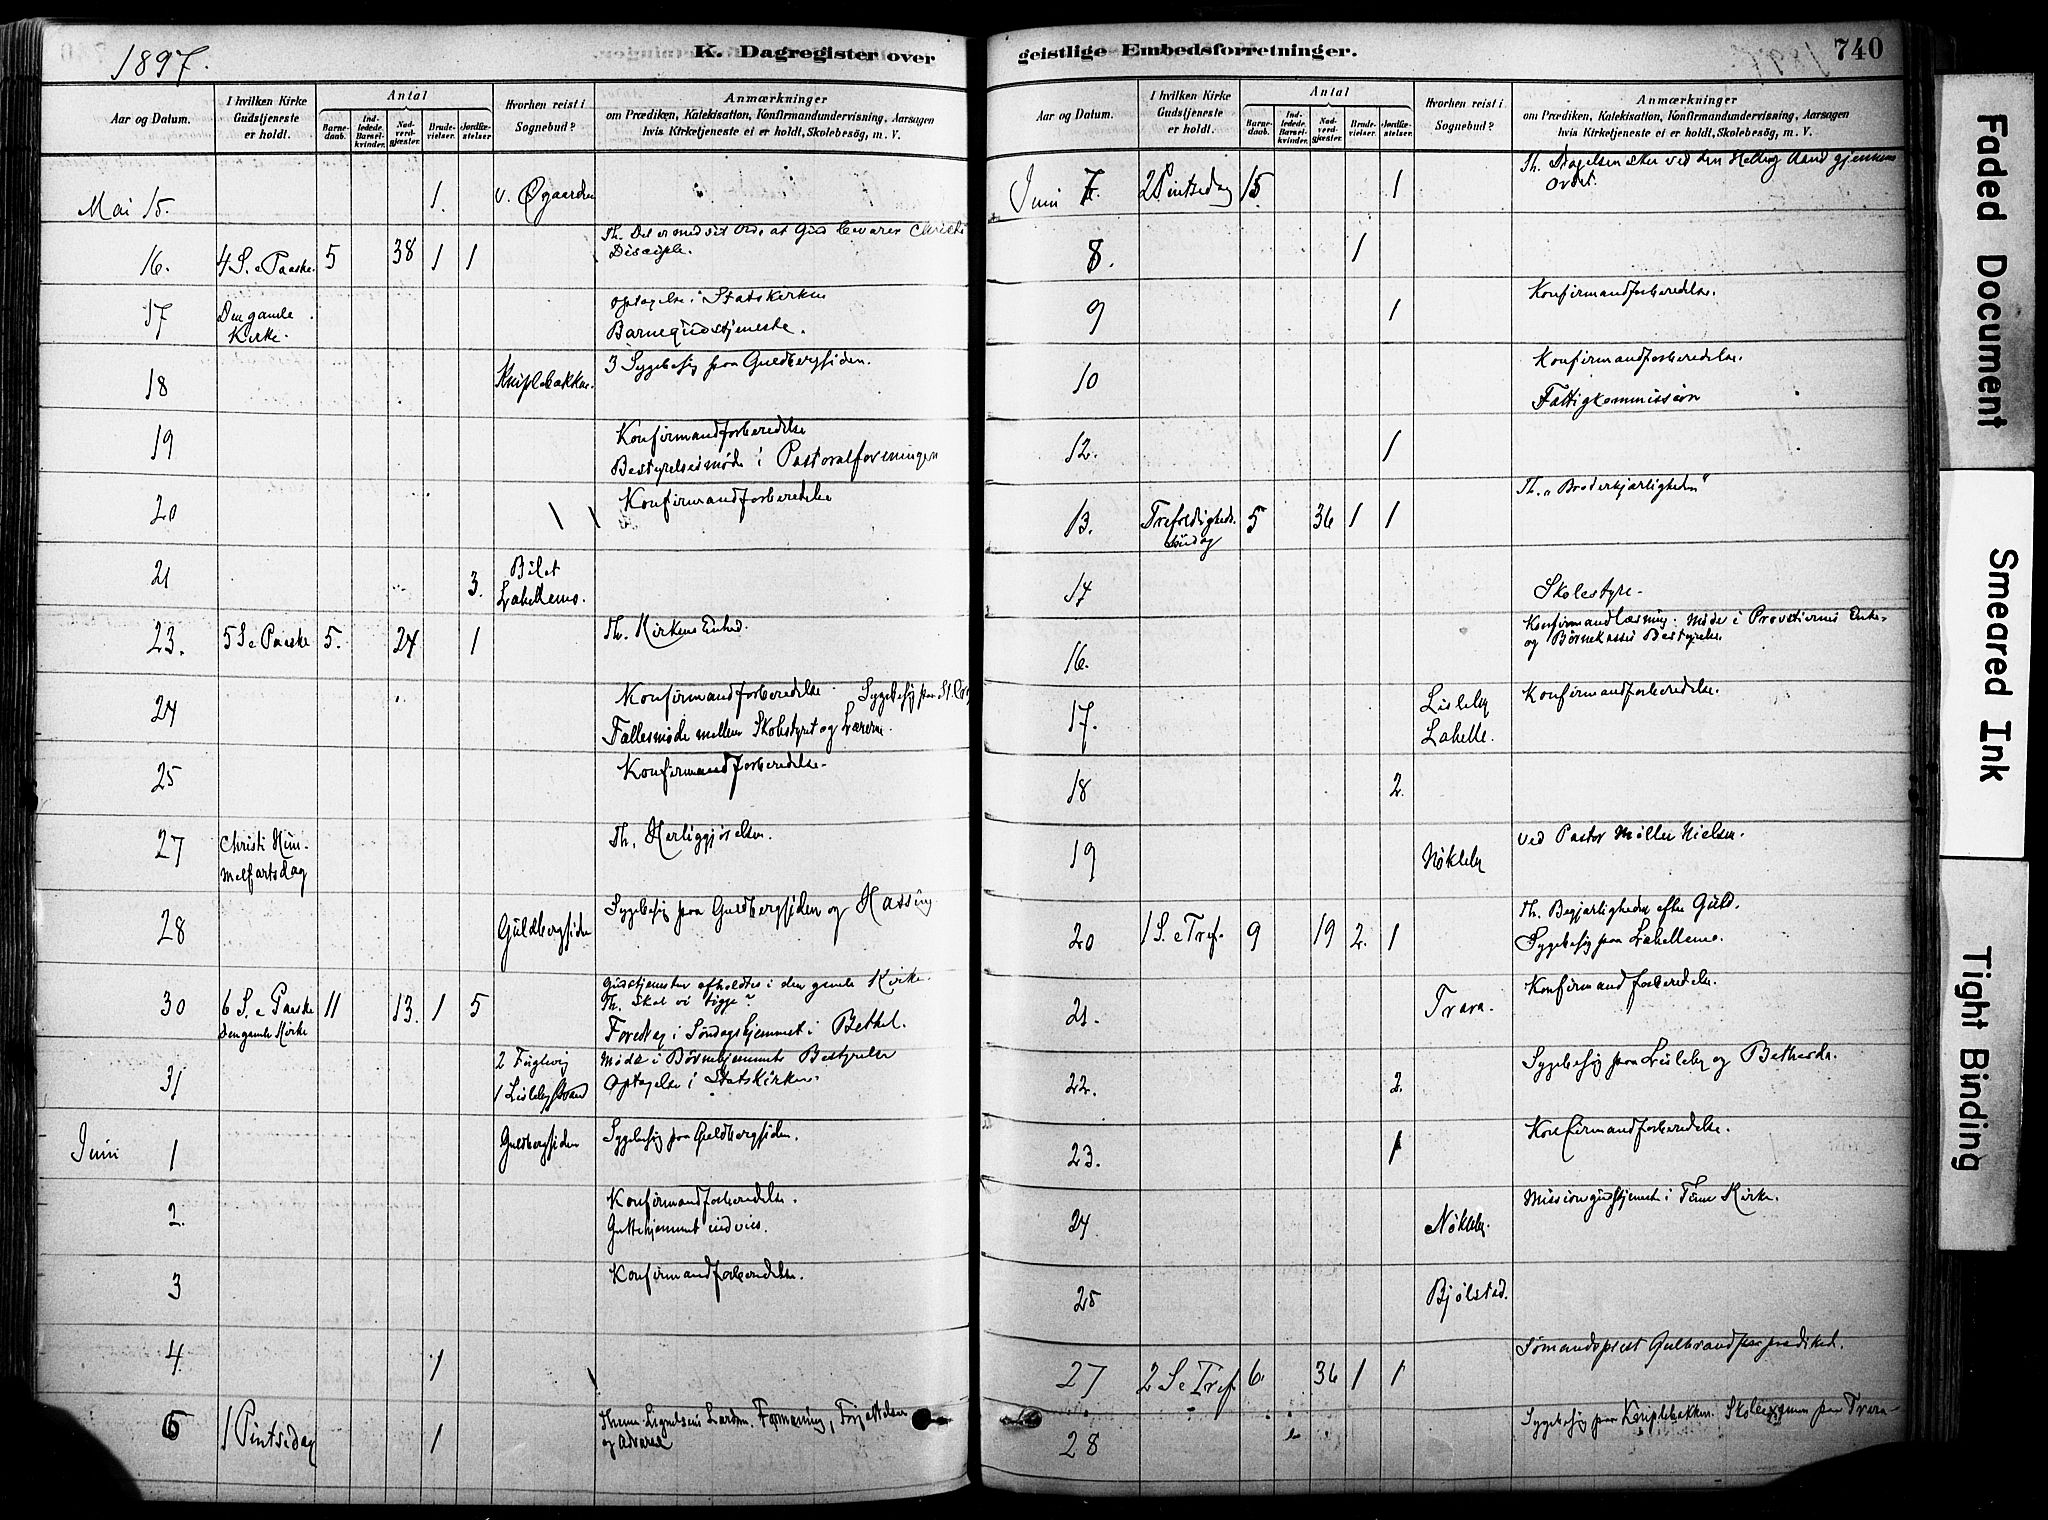 1897.
K. Dagregister over
Aar og Datum.
I hvilken Kirke Gudstjeneste er holdt.
Antal
Barnedaab.
Indledede Barselkvinder.
Nadverdgjæster.
Brudevielser.
Jordfæstelser
Hvorhen reist i Sognebud?
Anmærkninger
om Prædiken, Katekisation, Konfirmandundervisning, Aarsagen
hvis Kirketjeneste ei er holdt, Skolebesög, m. V.
Mai 15. 1. v. Øgaarden
16. 4 S. e Paaske. 5 38 1 1 Th. Det er med sit Ord at Gud bevarer Christi
Disciple.
17 Den gamle Kirke. Optagelse i Statskirken
Barnegudstjeneste.
18 Kniplebakken. 3 Sygebesøg paa Guldbergsiden.
19 Konfirmandforberedelse
Bestyrelsesmøde i Pastoralforeningen
20 Konfirmandforberedelse
21 3. Bilet
Lahellemo.
23. 5 S e Paaske 5. 24 1 Th. Kirkens Enhed.
24 Konfirmandforberedelse. Sygebesøg paa
Fællesmøde mellem Skolestyret og Lærerne.
25 Konfirmandforberedelse.
27 Christi Himmelfartsdag Th. Herliggjørelsen.
28 Guldbergsiden Sygebesøg paa Guldbergsiden og Hassing
30 6 S. e Paaske 11 13. 1 5 Gudstjenesten afholdtes i den gamle Kirke.
Den gamle Kirke Th. Skal vi tigge?
Foredrag i Søndagshjemmet i Bethel.
31 2 Fuglevig Møde i Børnehjemmets Bestyrelse
1 Lislebystrand Optagelse i Statskirken.
Juni 1 Guldbergsiden Sygebesøg paa Guldbergsiden.
2. Konfirmandforberedelse.
Guttehjemmet indvies.
3 Konfirmandforberedelse.
4 1
6 1 Pintsedag 1 Formaning, Forjættelsen
og Advarsel
geistlige Embedsforretninger.
740
Aar og Datum.
I hvilken Kirke Gudstjeneste er holdt.
Antal
Barnedaab.
Indledede Barselkvinder.
Nadverdgjæster.
Brudevielser.
Jordfæstelser.
Hvorhen reist i Sognebud?
Anmærkninger
om Prædiken, Katekisation, Konfirmandundervisning, Aarsagen
hvis Kirketjeneste ei er holdt, Skolebesög, m. V.
Juni 7 2 Pintsedag 15 1 Th. ved den Hellig Aand gjennem
Ordet.
8. 1
9 1 Konfirmandforberedelse.
10 Konfirmandforberedelse.
Fattigkommission
12. 1
13. Trefoldigheds- søndag 5 36 1 1 Th. "Broderkjærligheden"
14 Skolestyre.
16. Konfirmandlæsning. Møde i Provstiernes Enke-
og Børnekasses Bestyrelse
17. Lisleby Konfirmandforberedelse.
Lahelle.
18 2.
19 Nøkleby ved Pastor Møller Nielsen.
20 1 S. e Tref. 9 19 2. 1 Th. Begjærligheden efter Guld.
Sygebesøg paa Lahellemo.
21. Trara. Konfirmandforberedelse.
22. 2. Sygebesøg paa Lisleby og Bethesda.
23. 1 Konfirmandforberedelse.
24 Nøkleby. Missionsgudstjeneste i Tune Kirke.
25 Bjølstad.
27 2 S e Tref. 6. 36 1 1 Sømandsprest Gulbrandsen prædiked.
28 Sygebesøg paa Kniplebakken. Skoleexamen paa Trara
Faded Document
Smeared Ink
Tight Binding